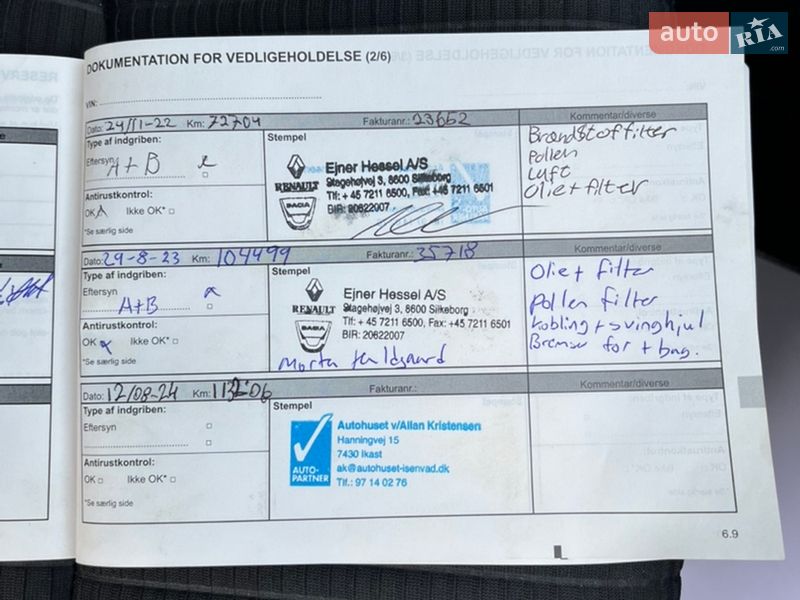 auto RIA .com
DOKUMENTATION FOR VEDLIGEHOLDELSE (2/6)
VIN:
Dato: 24/11-22 Km: 72704 Fakturanr.: 23662 Kommentar/diverse
Type af indgriben:
Eftersyn A+B
Antirustkontrol:
OK Ikke OK* □
*Se særlig side
Stempel
RENAULT
DACIA
Ejner Hessel A/S
Stagehøjvej 3, 8600 Silkeborg
Tlf: + 45 7211 6500, Fax: +45 7211 6501
BIR: 20622007
Brændstoffilter
Pollen
Luft
Olie+filter
Dato: 29-8-23 Km: 104499 Fakturanr.: 35718 Kommentar/diverse
Type af indgriben:
Eftersyn
A+B
Antirustkontrol:
OK Ikke OK* □
*Se særlig side
Stempel
RENAULT
DACIA
Ejner Hessel A/S
Stagehøjvej 3, 8600 Silkeborg
Tlf: + 45 7211 6500, Fax: +45 7211 6501
BIR: 20622007
Olie+ filter
pollen filter
kobling + svinghjul
Bremser for + bag.
Dato: 12/08-24 Km: Fakturanr.: Kommentar/diverse
Type af indgriben:
Eftersyn □
Antirustkontrol:
OK □ Ikke OK* □
*Se særlig side
Stempel
AUTO-
PARTNER
Autohuset v/Allan Kristensen
Hanningvej 15
7430 Ikast
ak@autohuset-isenvad.dk
Tlf.: 97 14 02 76
6.9